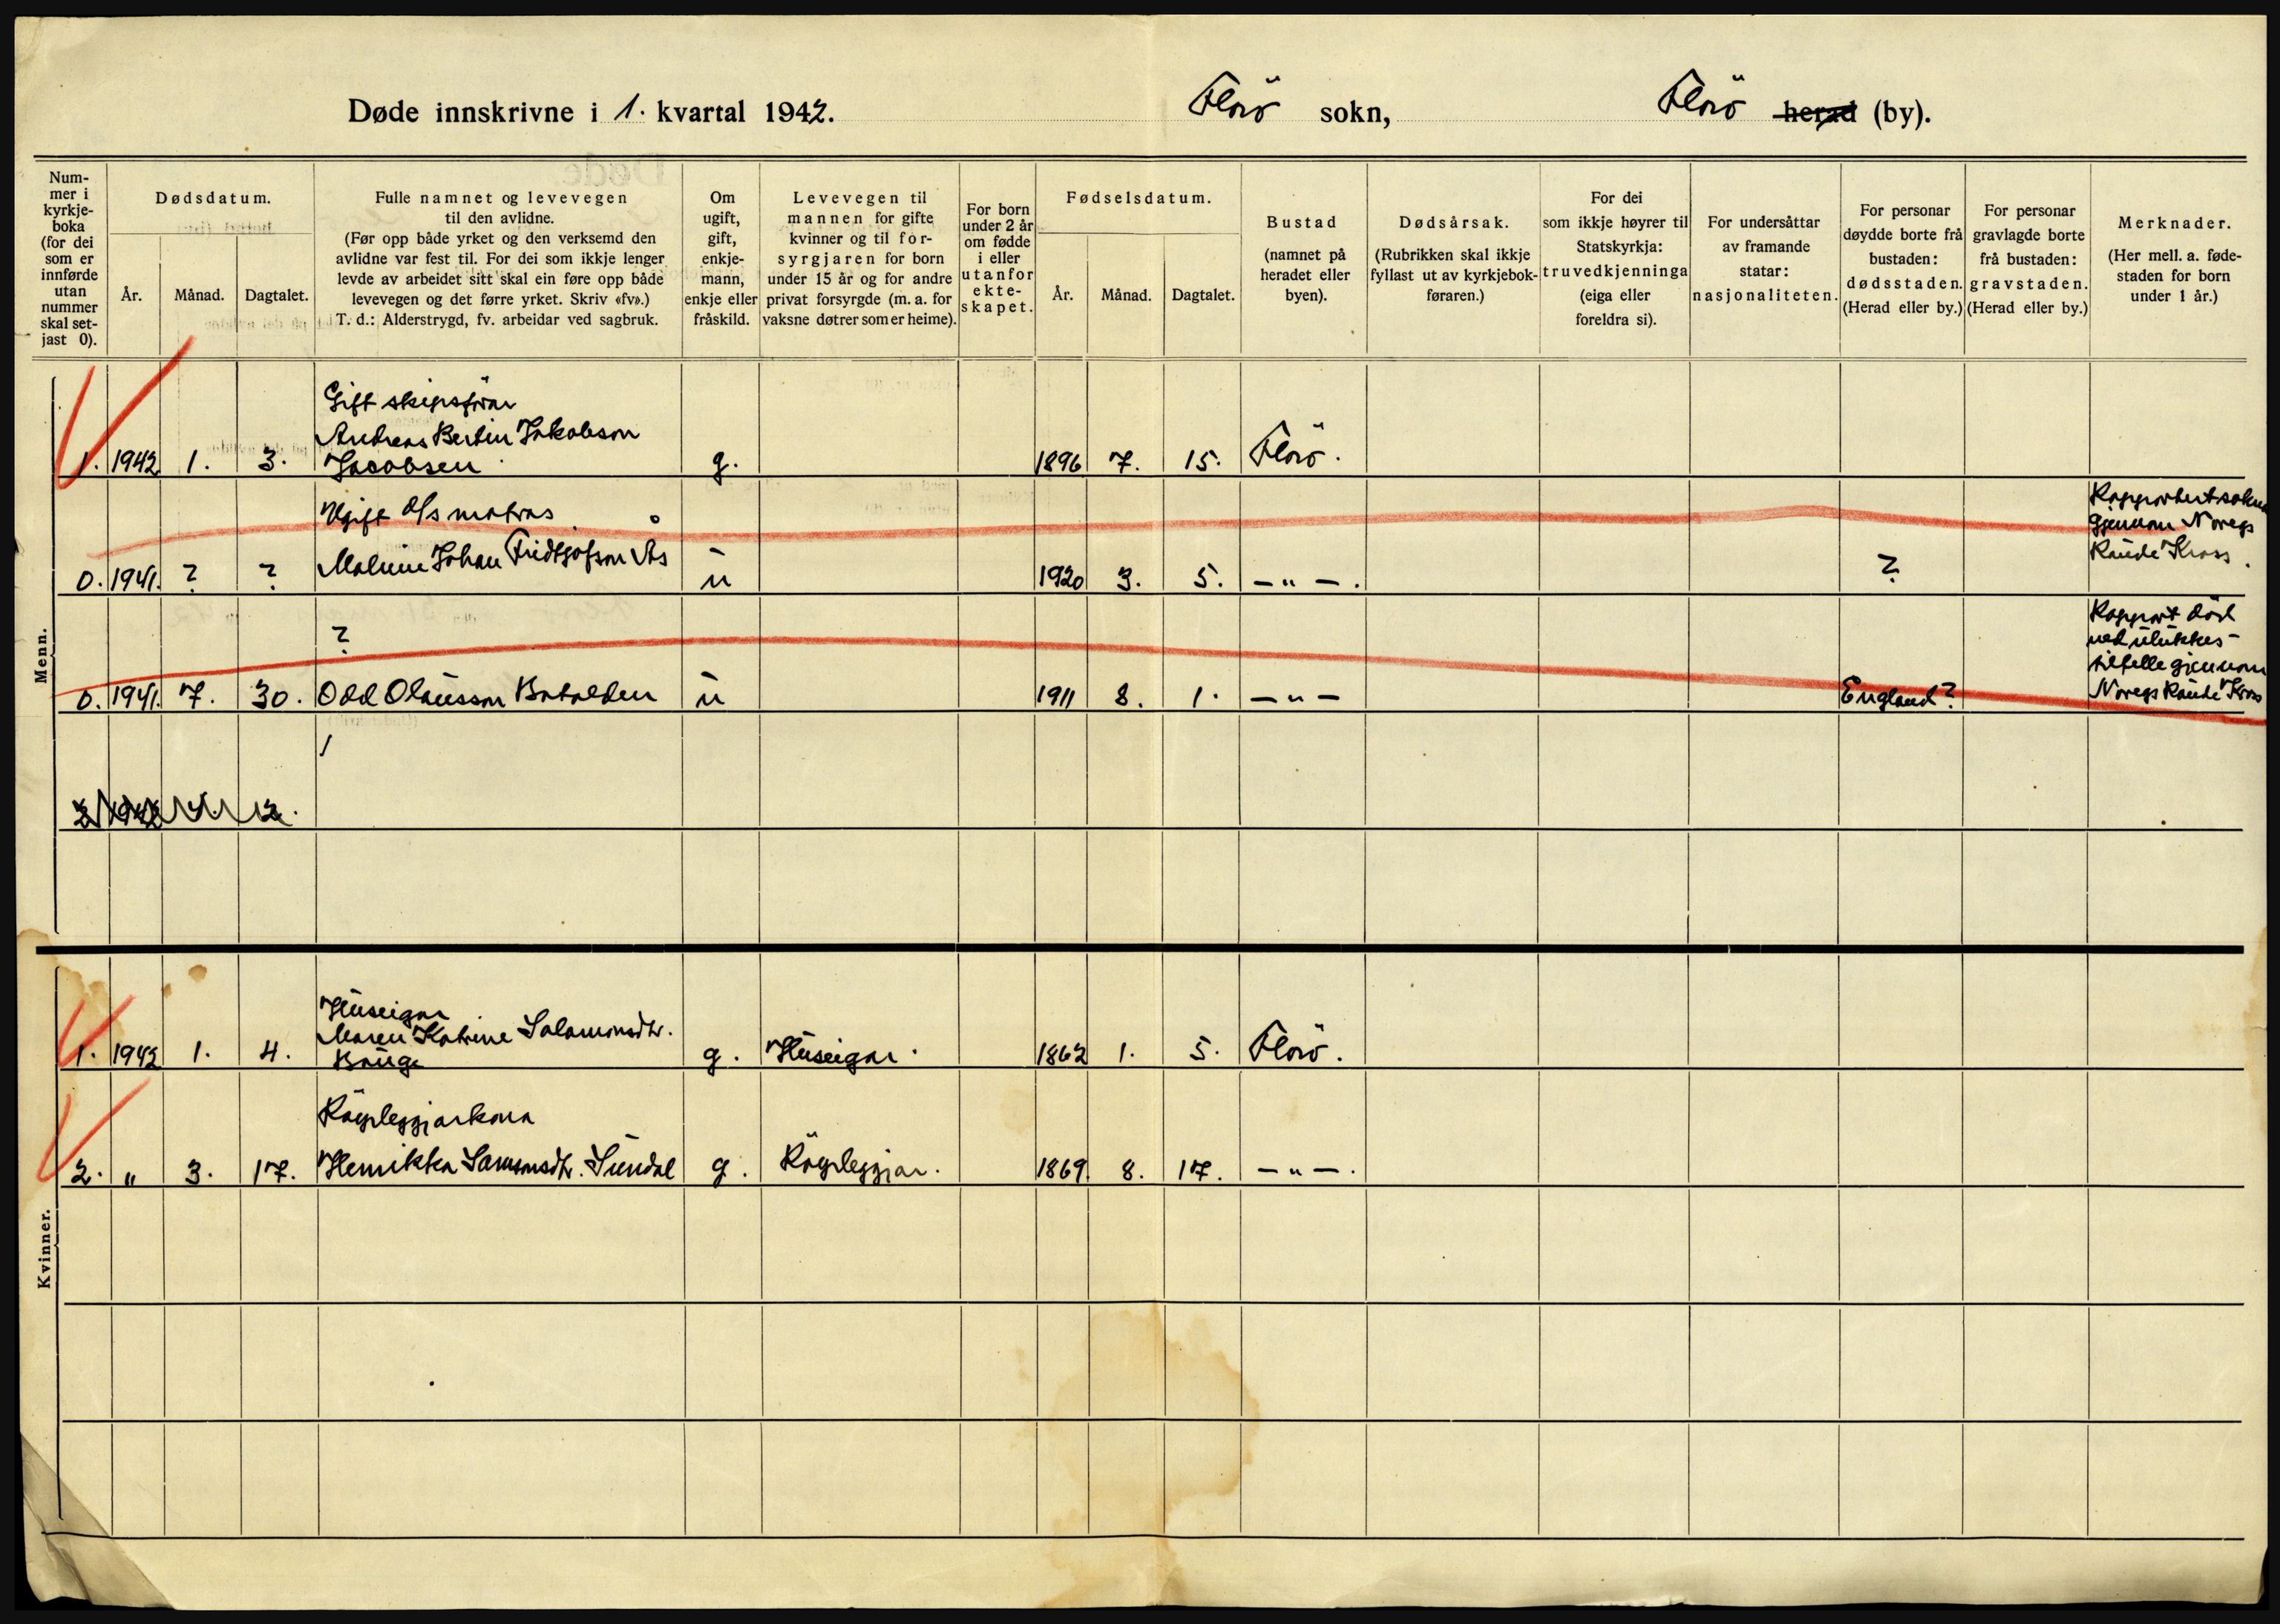 Døde innskrivne i 1. kvartal 1942. Florö sokn, Florö herad (by).
Num-
mer i
kyrkje-
boka
(for dei
som er
innførde
utan
nummer
skal set-
jast 0).
Dødsdatum.
År. Månad. Dagtalet.
Fulle namnet og levevegen
til den avlidne.
(Før opp både yrket og den verksemd den
avlidne var fest til. For dei som ikkje lenger
levde av arbeidet sitt skal ein føre opp både
levevegen og det førre yrket. Skriv «fv».)
T. d.: Alderstrygd, fv. arbeidar ved sagbruk.
Om
ugift,
gift,
enkje-
mann,
enkje eller
fråskild.
Levevegen til
mannen for gifte
kvinner og til for-
syrgjaren for born
under 15 år og for andre
privat forsyrgde (m. a. for
vaksne døtrer som er heime).
For born
under 2 år
om fødde
i eller
utanfor
ekte-
skapet.
Fødselsdatum.
År. Månad. Dagtalet.
Bustad
(namnet på
heradet eller
byen).
Dødsårsak.
(Rubrikken skal ikkje
fyllast ut av kyrkjebok-
føraren.)
For dei
som ikkje høyrer til
Statskyrkja:
truvedkjenninga
(eiga eller
foreldra si).
For undersåttar
av framande
statar:
nasjonaliteten.
For personar
døydde borte frå
bustaden:
dødsstaden.
(Herad eller by.)
For personar
gravlagde borte
frå bustaden:
gravstaden.
(Herad eller by.)
Merknader.
(Her mell. a. føde-
staden for born
under 1 år.)
Menn.
Gift skipsförar
Andreas Bertin Jakobson
1. 1942 1. 3. Jacobsen g. 1896 7. 15. Florö.
Ugift d/s matros
0. 1941. ? ? Johan Fridtjofson Ås u 1920 3. 5. —„—. ?
gjenom Noregs
Raude Kross.
?
0. 1941. 7. 30. Odd Olausson Batalden u 1911 8. 1. —„— England?
Rapport död
ved ulukkes-
tilfelle gjennom
Noregs Raude Kross
2 1942
Kvinner.
Huseigar
Maren Katrine Salamonsdtr.
1. 1942 1. 4. Bauge g. Huseigar. 1862 1. 5. Florö.
Röyrleggjarkona
2. „ 3. 17. Henrikka Samsonsdtr. Sundal g. Röyrleggjar. 1869. 8. 17. —„—.